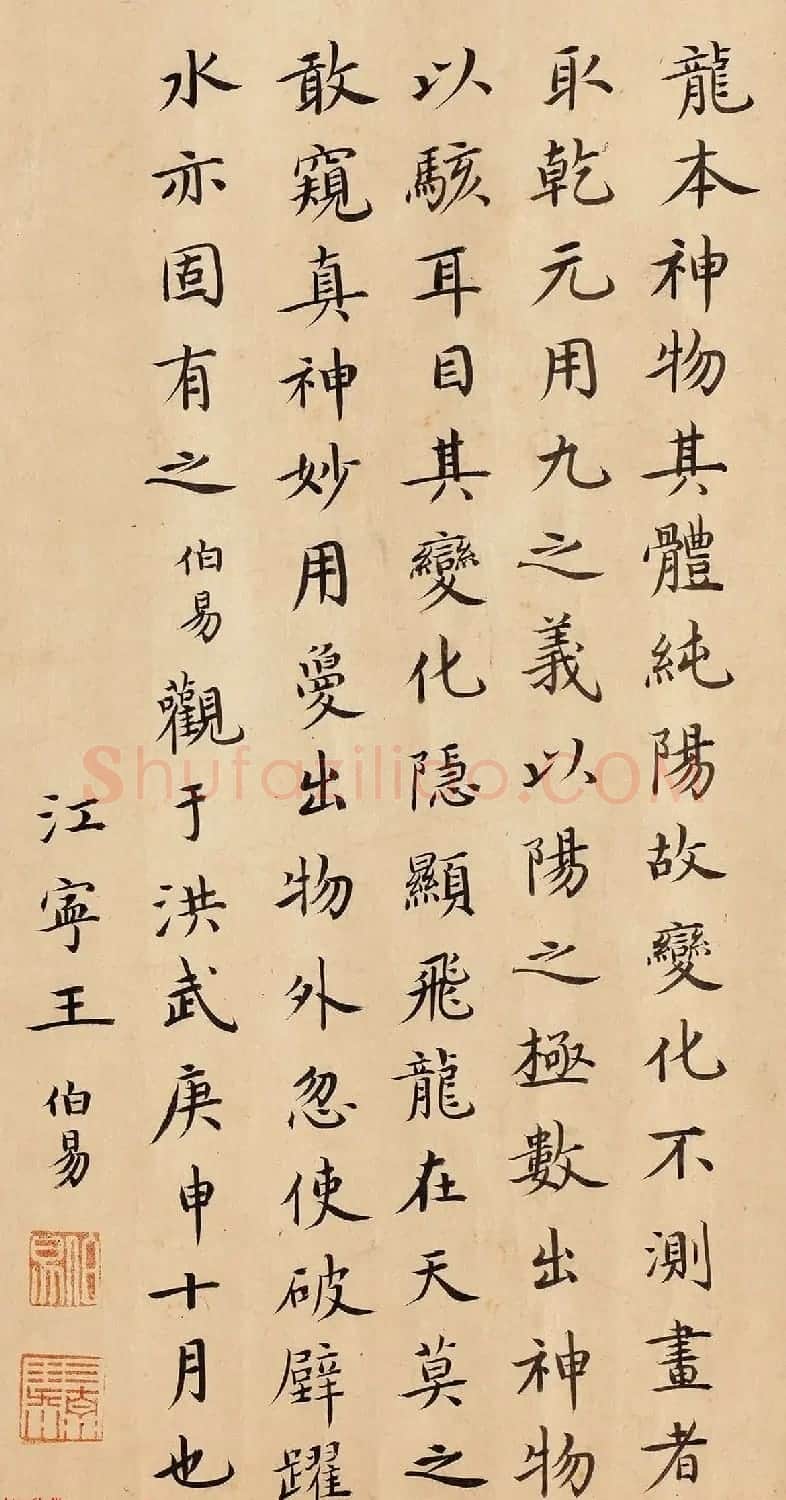 龍本神物其體純陽故變化不測畫者
取乾元用九之義以陽之極數出神物
以駭耳目其變化隱顯飛龍在天莫之
敢窺真神妙用愛出物外忽使破壁躍
水亦固有之伯易觀于洪武庚申十月也
江寧王伯易
shufaziliao.com